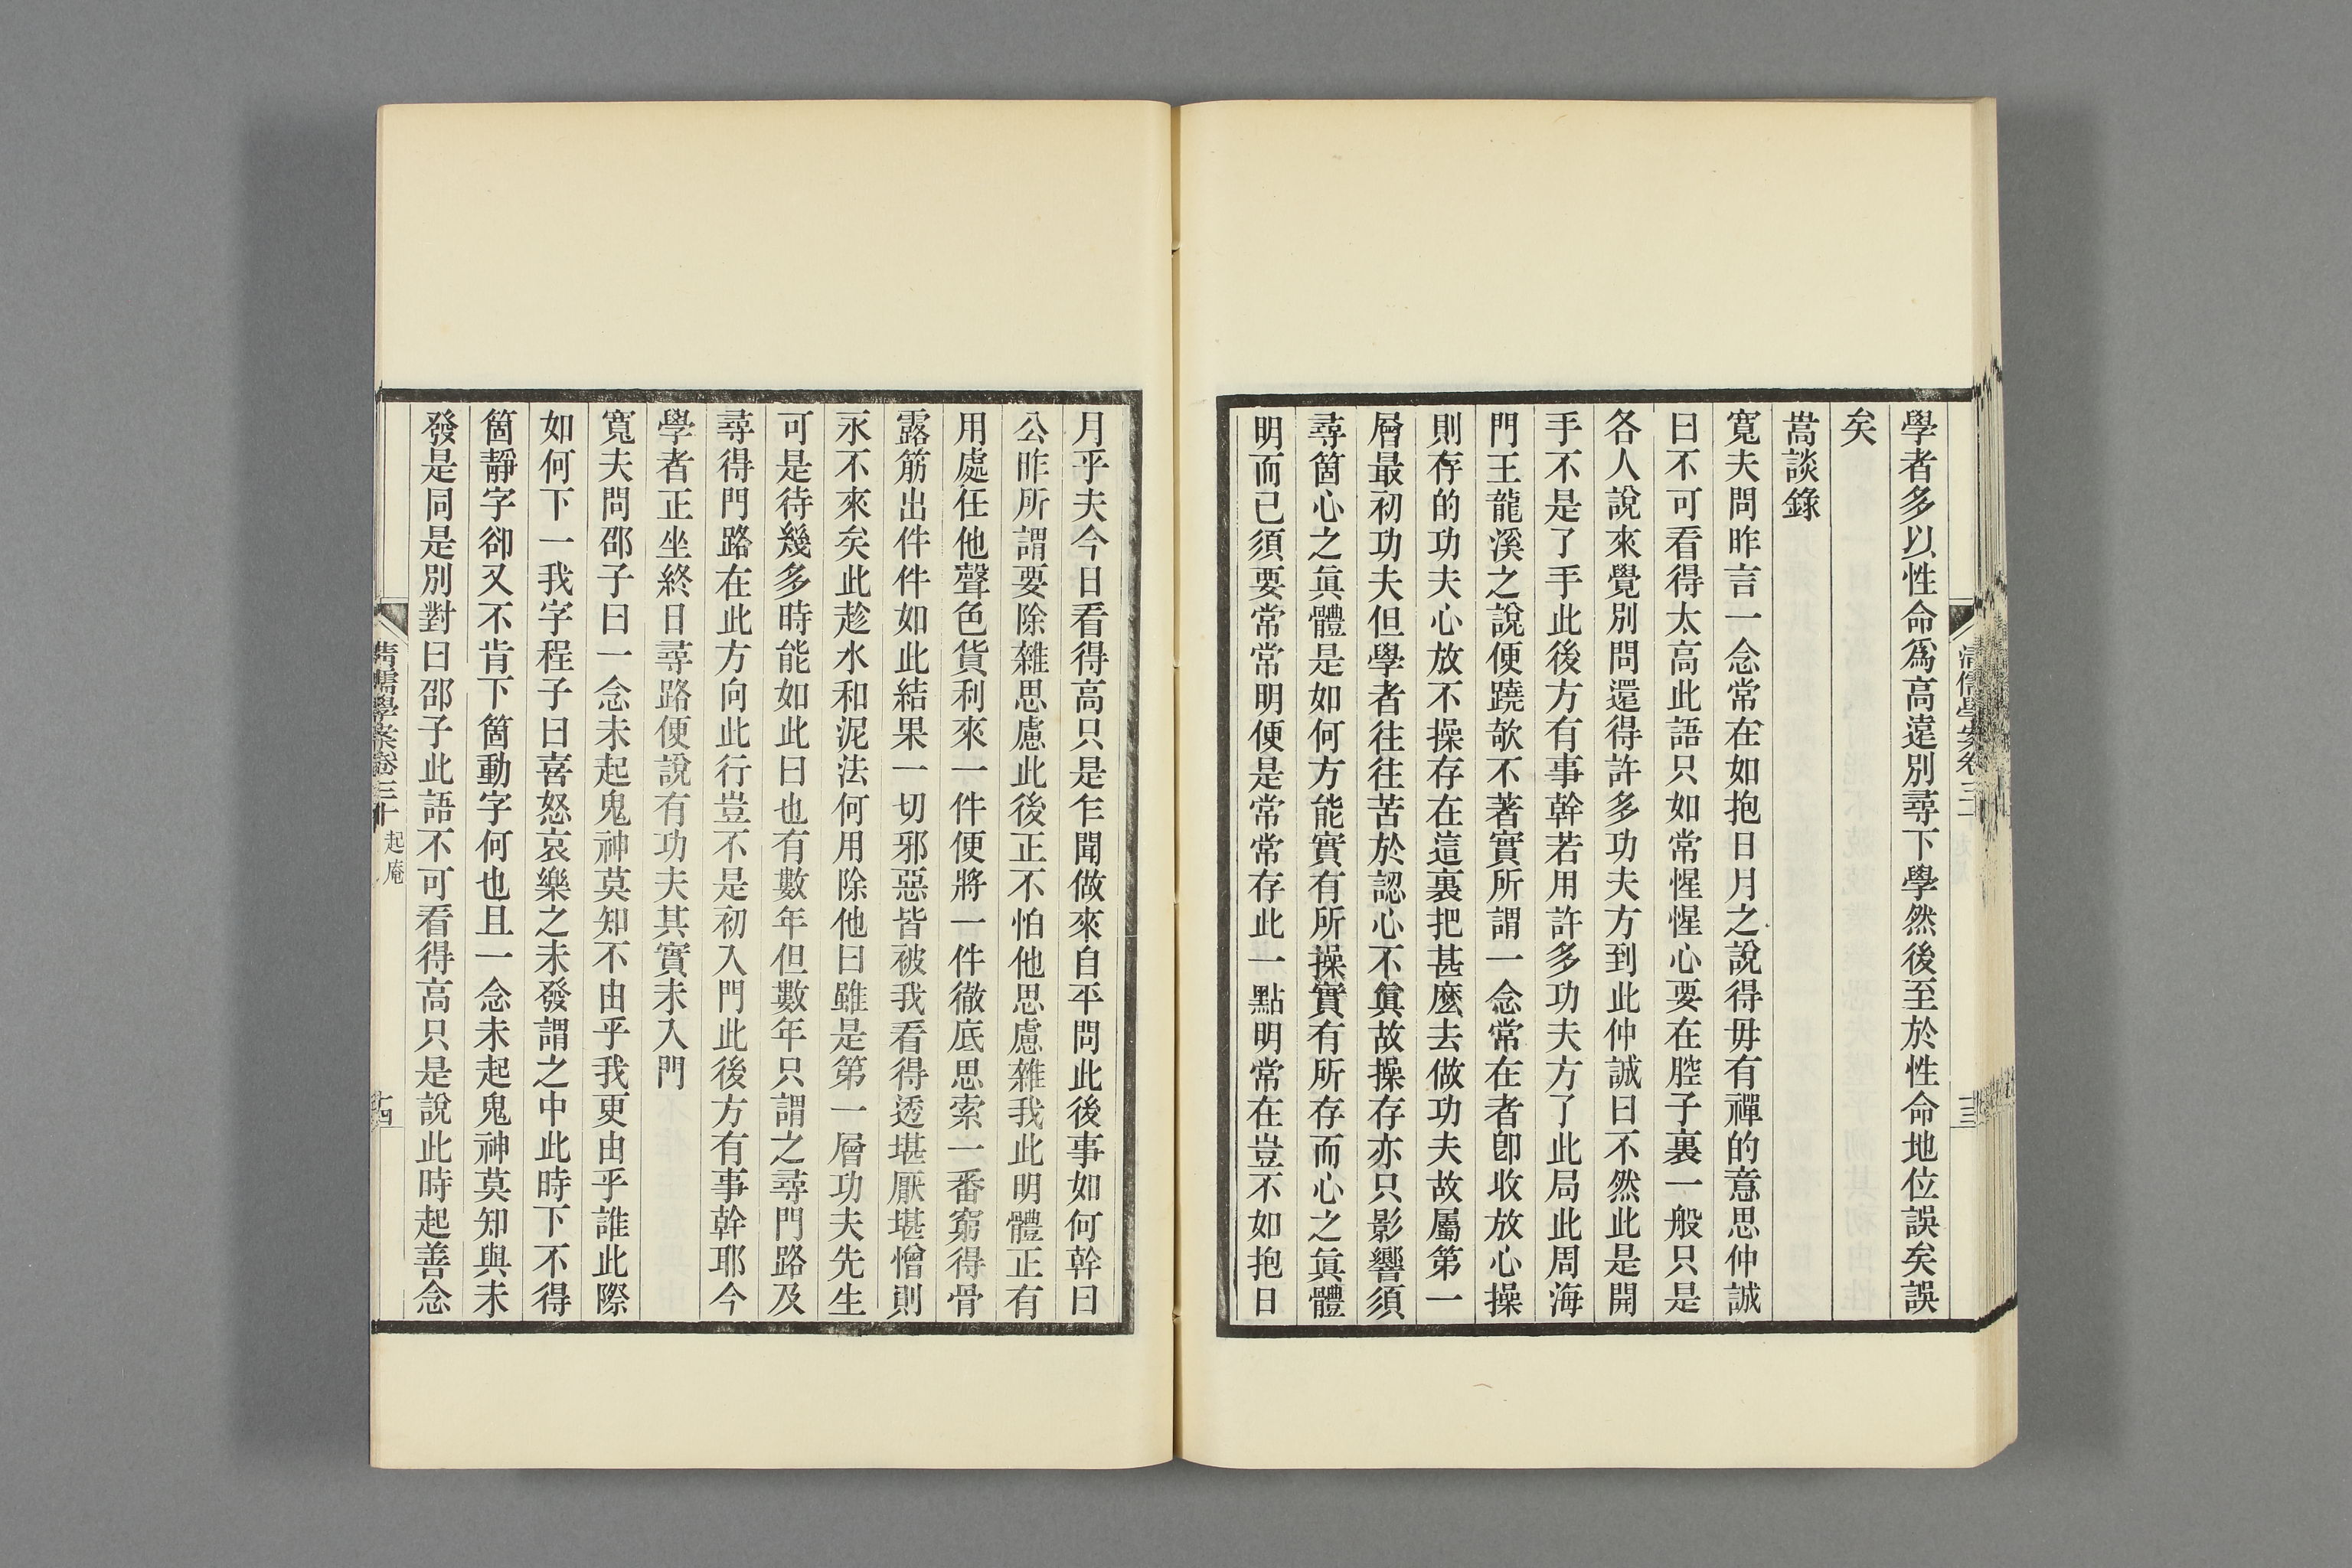 學者多以性命爲高遠別尋下學然後至於性命地位誤矣誤
矣
嵩談錄
寬夫問昨言一念常在如抱日月之說得毋有禪的意思仲誠
曰不可看得太高此語只如常惺惺心要在腔子裏一般只是
各人說來覺別問還得許多功夫方到此仲誠曰不然此是開
手不是了手此後方有事幹若用許多功夫方了此局此周海
門王龍溪之說便蹺欹不著實所謂一念常在者卽收放心操
則存的功夫心放不操存在這裏把甚麽去做功夫故屬第一
層最初功夫但學者往往苦於認心不眞故操存亦只影響須
尋箇心之眞體是如何方能實有所操實有所存而心之眞體
明而已須要常常明便是常常存此一點明常在豈不如抱日
月乎夫今日看得高只是乍聞做來自平問此後事如何幹曰
公昨所謂要除雜思慮此後正不怕他思慮雜我此明體正有
用處任他聲色貨利來一件便將一件徹底思索一番窮得骨
露筋出件件如此結果一切邪惡皆被我看得透堪厭堪憎則
永不來矣此趁水和泥法何用除他曰雖是第一層功夫先生
可是待幾多時能如此曰也有數年但數年只謂之尋門路及
尋得門路在此方向此行豈不是初入門此後方有事幹耶今
學者正坐終日尋路便說有功夫其實未入門
寬夫問邵子曰一念未起鬼神莫知不由乎我更由乎誰此際
如何下一我字程子曰喜怒哀樂之未發謂之中此時下不得
箇靜字卻又不肯下箇動字何也且一念未起鬼神莫知與未
發是同是別對曰邵子此語不可看得高只是說此時起善念
清儒學案卷三十 起庵
十四